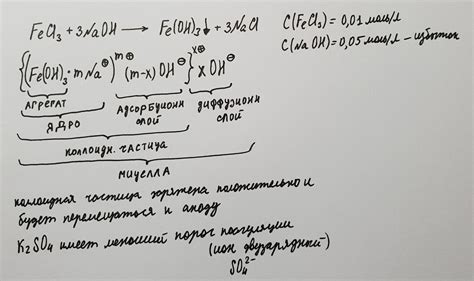 FeCl₃ + 3NaOH ⟶ Fe(OH)₃↓ + 3NaCl
C(FeCl₃) = 0,01 моль/л
C(NaOH) = 0,05 моль/л – избыток
{(Fe(OH)₃ · mNa⊕)ᵐ⊕ (m-x) OH⊖}ˣ⊕ x OH⊖
АГРЕГАТ
АДСОРБЦИОНН СЛОЙ
ДИФФУЗИОНН СЛОЙ
ЯДРО
КОЛЛОИДН. ЧАСТИЦА
МИЦЕЛЛА
коллоидная частица заряжена положительно и
будет перемещаться к аноду
K₂SO₄ имеет меньший порог коагуляции
(ион двузарядный)
SO₄²⁻